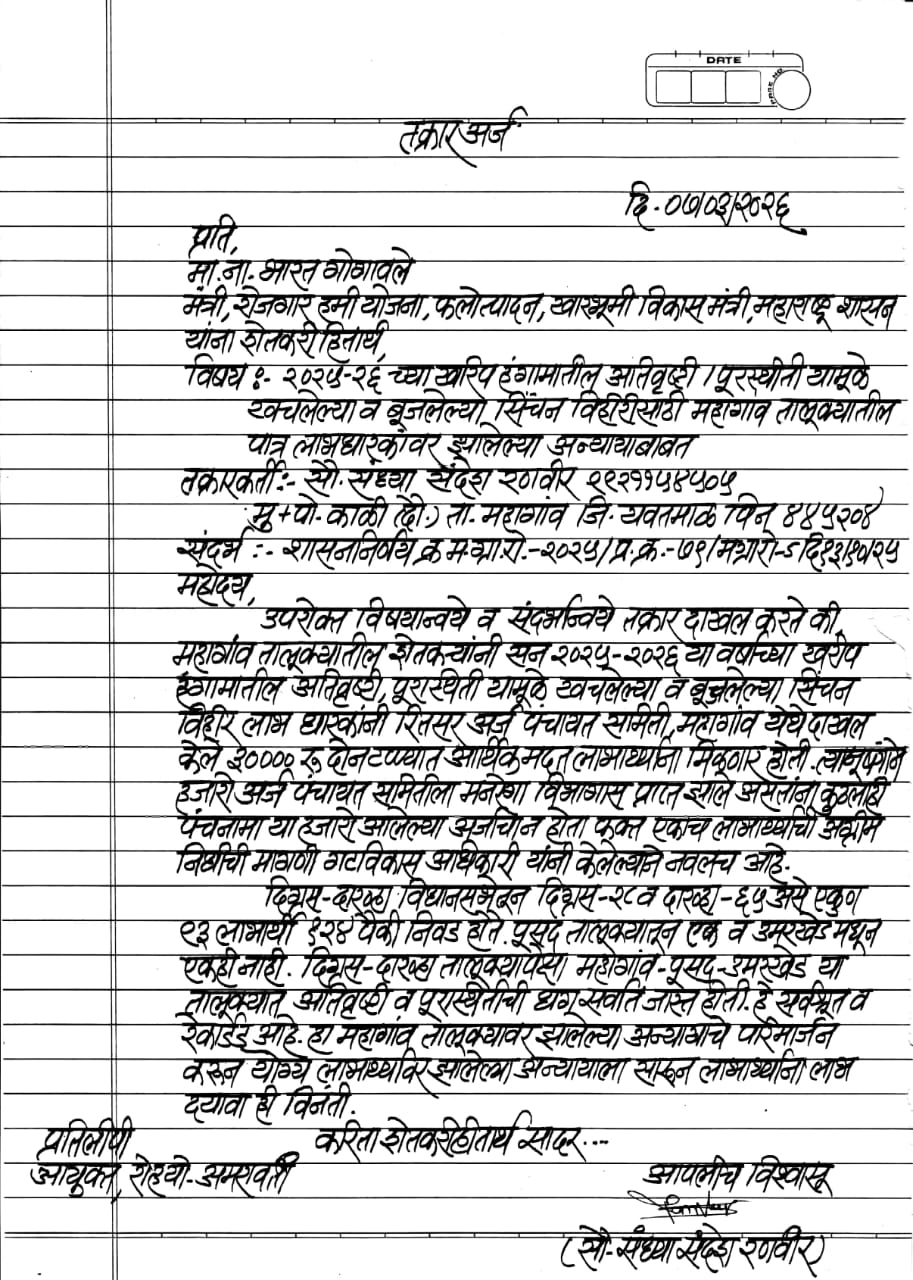 DATE
PAGE NO
तक्रार अर्ज
दि. ०७/०३/२०२६
प्रति,
मा. ना. भारत गोगावले
मंत्री, रोजगार हमी योजना, फलोत्पादन, खारभूमी विकास मंत्री, महाराष्ट्र शासन
यांना शेतकरी हितार्थ,
विषय :- २०२५-२६ च्या खरिप हंगामातील अतिवृष्टी / पूरस्थीती यामूळे
खचलेल्या व बूजलेल्या सिंचन विहीरीसाठी महागाव तालूक्यातील
पात्र लाभधारकांवर झालेल्या अन्यायाबाबत
तक्रारकर्ती:- सौ. संध्या संदेश रणवीर ९९२११५४५०५
मु + पो. काळी (दौ.) ता. महागांव जि. यवतमाळ पिन ४४५२०४
संदर्भ :- शासननिर्णय क्र म.ग्रा.रो.-२०२५/प्र.क्र.-७९/मग्रारो-५ दि१३/१०/२५
महोदय,
उपरोक्त विषयान्वये व संदर्भान्वये तक्रार दाखल करते की,
महागांव तालूक्यातील शेतकऱ्यांनी सन २०२५-२०२६ या वर्षाच्या खरीप
हंगामातील अतिवृष्टी, पूरास्थिती यामूळे खचलेल्या व बूजलेल्या सिंचन
विहीर लाभ धारकांनी रितसर अर्ज पंचायत समिती, महागांव येथे दाखल
केले ३०००० रू दोन टप्प्यात आर्थिक मदत लाभार्थ्यांना मिळणार होती. त्यानूषंगाने
हजारो अर्ज पंचायत समितीला मनरेगा विभागास प्राप्त झाले असतांना कुठलाही
पंचनामा या हजारो आलेल्या अर्जाचा न होता फक्त एकाच लाभार्थ्याची अग्रीम
निधीची मागणी गटविकास अधिकारी यांनी केलेल्याने नवलच आहे.
दिग्रस-दारव्हा विधानसभेतून दिग्रस-२८ व दारव्हा-६५ असे एकुण
९३ लाभार्थी १२४ पैकी निवड होते. पूसद तालूक्यातून एक व उमरखेड मधून
एकही नाही. दिग्रस-दारव्हा तालूक्यापेक्षा महागांव-पूसद-उमरखेड या
तालूक्यात अतिवृष्टी व पूरास्थितीची धग सर्वात जास्त होती. हे सर्वश्रूत व
रेकॉर्डड आहे. हा महागांव तालूक्यावर झालेल्या अन्यायाचे परिमार्जन
करून योग्य लाभार्थ्यांवर झालेल्या अन्यायाला सारून लाभार्थ्यांना लाभ
दयावा ही विनंती.
करिता शेतकरी हीतार्थ सादर...
प्रतिलीपी
आयुक्त, रोहयो-अमरावती
आपलीच विश्वासू
(सौ. संध्या संदेश रणवीर)